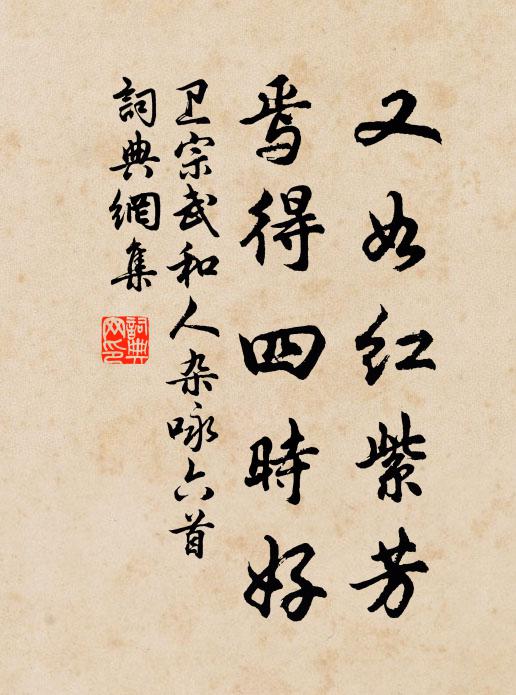 又如红紫芳
焉得四時好
卫宗武和人杂咏六首
詞典網集
詞典
网印